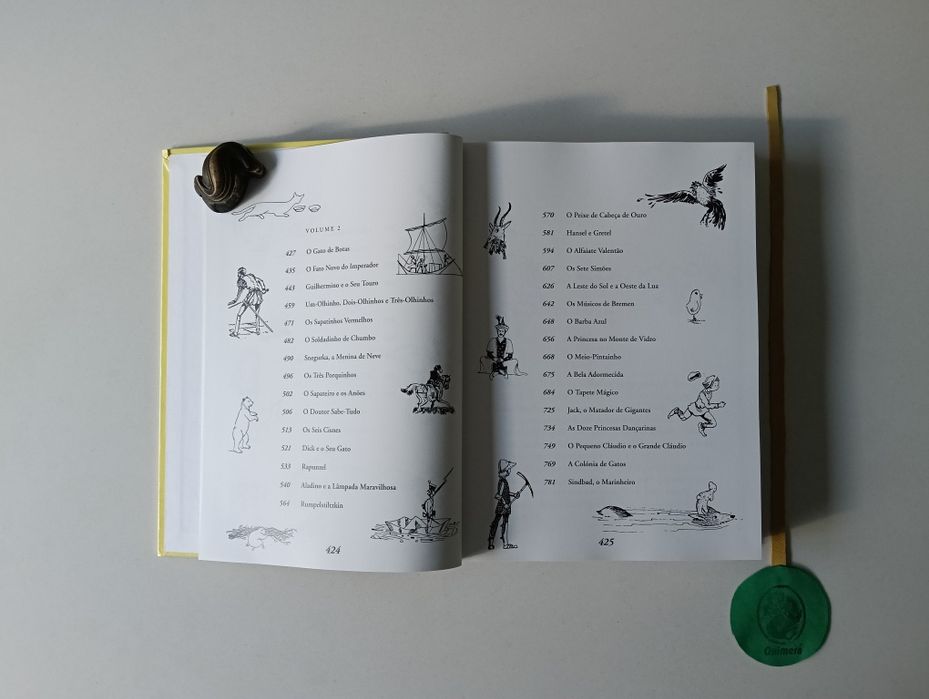 VOLUME 2
427 O Gato de Botas
435 O Fato Novo do Imperador
443 Guilhermino e o Seu Touro
459 Um-Olhinho, Dois-Olhinhos e Três-Olhinhos
471 Os Sapatinhos Vermelhos
482 O Soldadinho de Chumbo
490 Snegurka, a Menina de Neve
496 Os Três Porquinhos
502 O Sapateiro e os Anões
506 O Doutor Sabe-Tudo
513 Os Seis Cisnes
521 Dick e o Seu Gato
533 Rapunzel
540 Aladino e a Lâmpada Maravilhosa
564 Rumpelstiltskin
424
570 O Peixe de Cabeça de Ouro
581 Hansel e Gretel
594 O Alfaiate Valentão
607 Os Sete Simões
626 A Leste do Sol e a Oeste da Lua
642 Os Músicos de Bremen
648 O Barba Azul
656 A Princesa no Monte de Vidro
668 O Meio-Pintainho
675 A Bela Adormecida
684 O Tapete Mágico
725 Jack, o Matador de Gigantes
734 As Doze Princesas Dançarinas
749 O Pequeno Cláudio e o Grande Cláudio
769 A Colónia de Gatos
781 Sindbad, o Marinheiro
425
Quimera